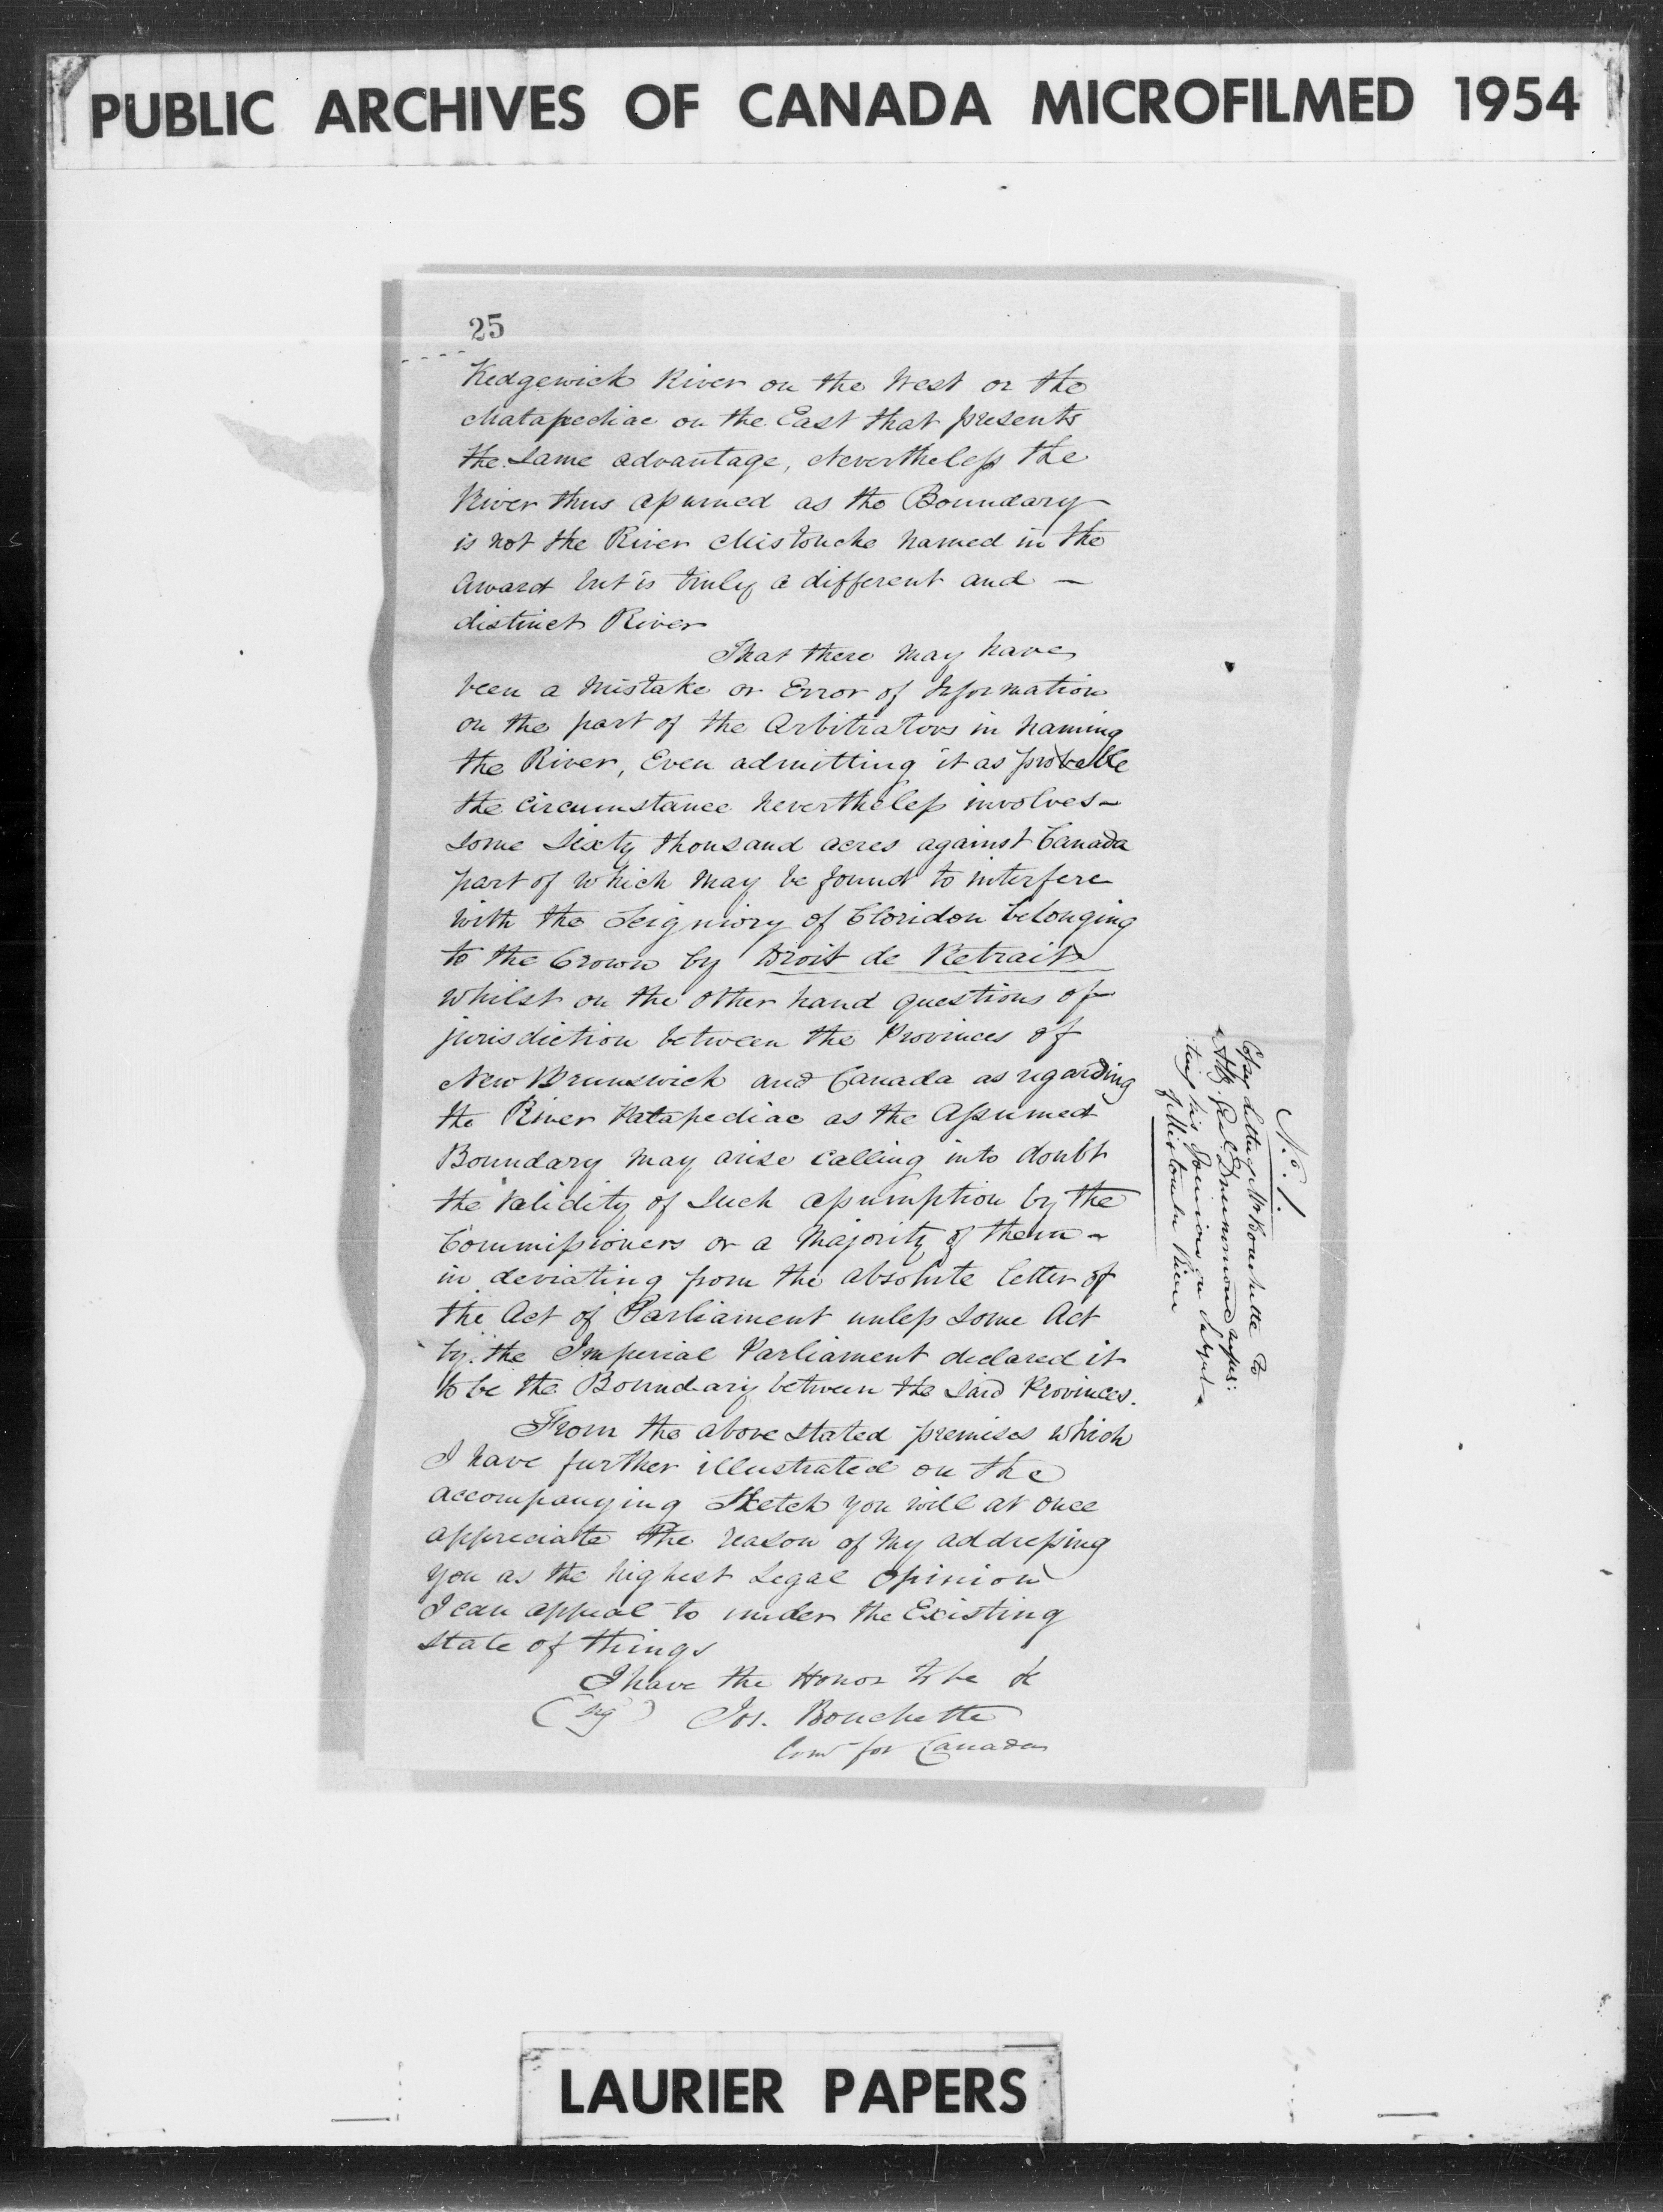 PUBLIC ARCHIVES OF CANADA MICROFILMED 1954
25
Kedgewick River on the West or the
Matapediac on the East that presents
the same advantage, Nevertheless the
River thus assumed as the Boundary
is not the River Mistouche named in the
Award but is truly a different and —
distinct River
That there may have
been a mistake or Error of Information
on the part of the Arbitrators in naming
the River, Even admitting it as probable
the circumstance nevertheless involves —
some sixty thousand acres against Canada
part of which may be found to interfere
with the Seigniory of Cloridon belonging
to the Crown by Droit de Retrait
Whilst on the other hand questions of
jurisdiction between the Provinces of
New Brunswick and Canada as regarding
the River Patapediac as the Assumed
Boundary may arise calling into doubt
the validity of such assumption by the
Commissioners or a Majority of them —
in deviating from the absolute letter of
the Act of Parliament unless some Act
by the Imperial Parliament declared it
to be the Boundary between the said Provinces.
From the above stated premises which
I have further illustrated on the
accompanying Sketch you will at once
appreciate the reason of my addressing
you as the highest Legal Opinion
I can appeal to under the Existing
state of things
I have the Honor to be &c
(Sig) Jos. Bouchette
Comr for Canada
No. 1.
Copy Letter of Mr Bouchette to
Atty. Genl. Drummond reques:
:ting his Opinion on
of Mistouche River
LAURIER PAPERS